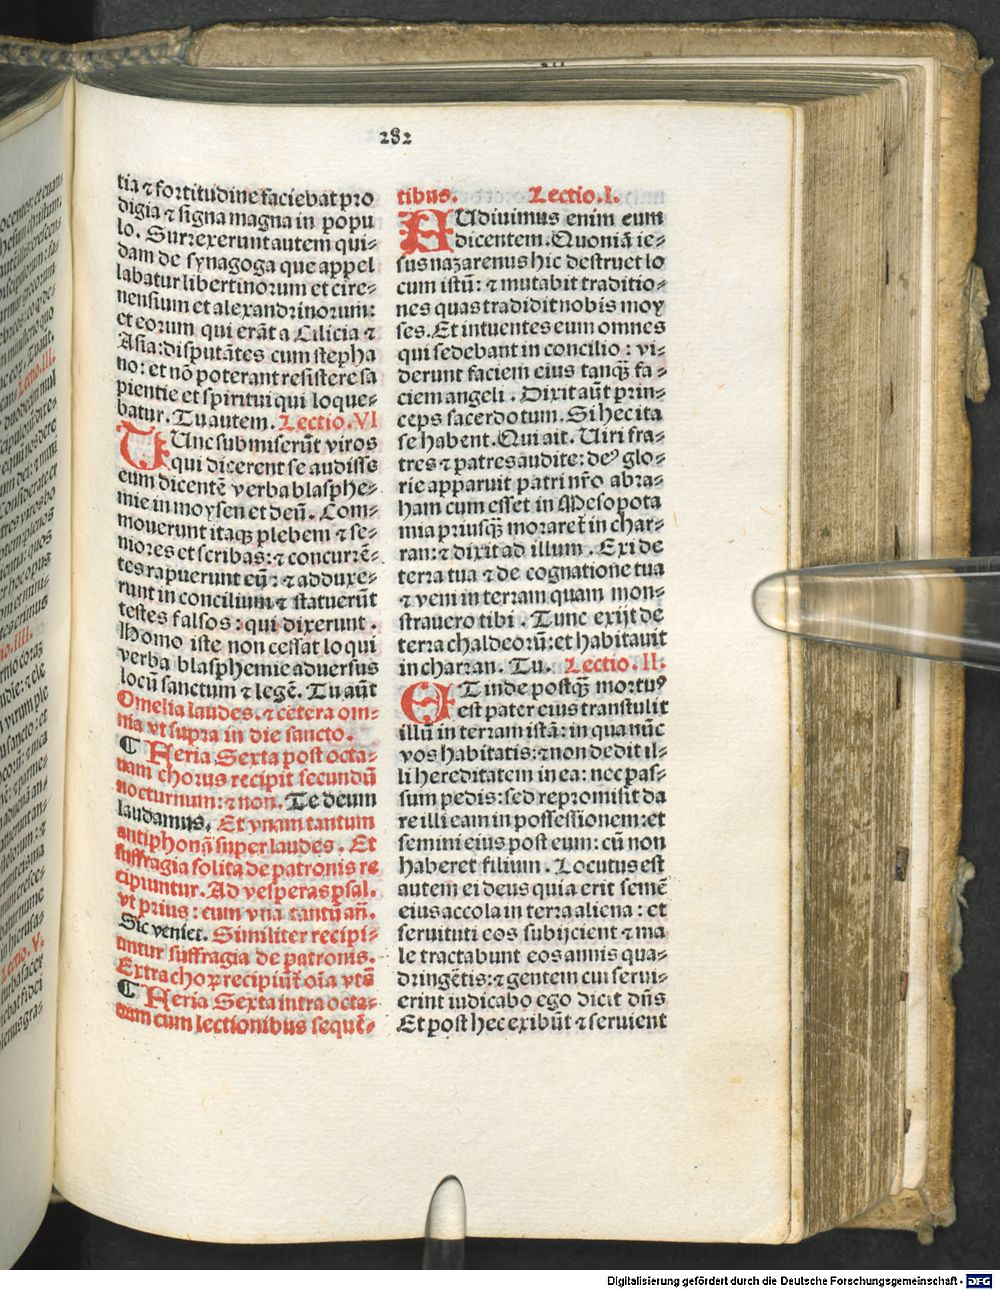 282
tia ⁊ fortitudine faciebat pro
digia ⁊ signa magna in popu
lo. Surrexerunt autem qui⸗
dam de synagoga que appel
labatur libertinorum et cire⸗
nensium et alexandrinorum:
et eorum qui erāt a Cilicia ⁊
Asia: disputātes cum stepha
no: et nō poterant resistere sa
pientie et spiritui qui loque⸗
batur. Tu autem. Lectio. VI
TUnc submiserūt viros
qui dicerent se audisse
eum dicentē verba blasphe⸗
mie in moysen et deū. Com⸗
mouerunt itaqꝫ plebem ⁊ se⸗
niores et scribas: ⁊ concurrē⸗
tes rapuerunt eū: ⁊ adduxe⸗
runt in concilium ⁊ statuerūt
testes falsos: qui dixerunt.
Homo iste non cessat loqui
verba blasphemie aduersus
locū sanctum ⁊ legē. Tu aūt
Omelia laudes. ⁊ cetera om⸗
nia vt supra in die sancto.
¶ Feria Sexta post octa⸗
uam chorus recipit secundū
nocturnum: ⁊ non. Te deum
laudamus. Et vnam tantum
antiphonā super laudes. Et
suffragia solita de patronis re
cipiuntur. Ad vesperas psal.
vt prius: cum vna tantū añ.
Sic veniet. Similiter recipi⸗
untur suffragia de patronis.
Extra choꝝ recipiūt̄ oīa vts̄
¶ Feria Sexta intra octa⸗
uam cum lectionibus sequē⸗
tibus. Lectio. I.
AUdiuimus enim eum
dicentem. Quoniā ie⸗
sus nazarenus hic destruet lo
cum istū: ⁊ mutabit traditio⸗
nes quas tradidit nobis moy
ses. Et intuentes eum omnes
qui sedebant in concilio: vi⸗
derunt faciem eius tanqꝫ fa⸗
ciem angeli. Dixit aūt prin⸗
ceps sacerdotum. Si hec ita
se habent. Qui ait. Uiri fra⸗
tres ⁊ patres audite: deꝰ glo⸗
rie apparuit patri nr̄o abra⸗
ham cum esset in Mesopota
mia priusqꝫ moraret̄ in char⸗
ran: ⁊ dixit ad illum. Exi de
terra tua ⁊ de cognatione tua
⁊ veni in terram quam mon⸗
strauero tibi. Tunc exijt de
terra chaldeorū: et habitauit
in charran. Tu. Lectio. II.
ET inde postqꝫ mortuꝰ
est pater eius transtulit
illū in terram istā: in qua nūc
vos habitatis: ⁊ non dedit il⸗
li hereditatem in ea: nec pas⸗
sum pedis: sed repromisit da
re illi eam in possessionem: et
semini eius post eum: cū non
haberet filium. Locutus est
autem ei deus quia erit semē
eius accola in terra aliena: et
seruituti eos subijcient ⁊ ma
le tractabunt eos annis qua⸗
dringētis: ⁊ gentem cui serui⸗
erint iudicabo ego dicit dn̄s
Et post hec exibūt ⁊ seruient
Digitalisierung gefördert durch die Deutsche Forschungsgemeinschaft - DFG